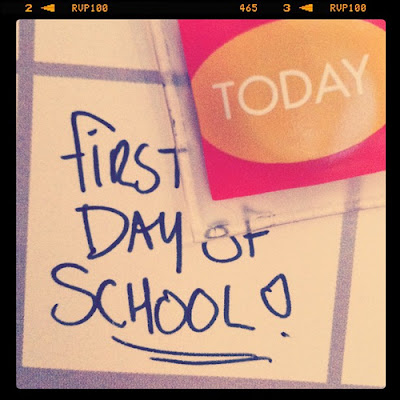 2 RVP100 465 3 RVP100
TODAY
FIRST
DAY OF
SCHOOL!